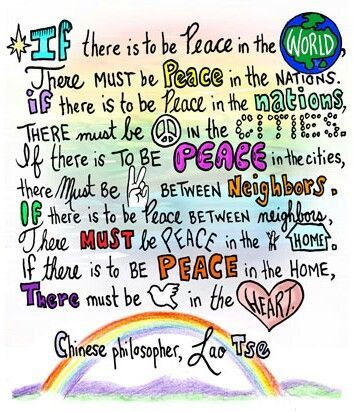 If there is to be Peace in the WORLD,
There MUST BE Peace in the NATIONS.
if there is to be Peace in the nations,
THERE must be IN the CITIES.
If there is TO BE PEACE in the cities,
there Must BE BETWEEN Neighbors.
IF there is to be Peace BETWEEN neighbors,
There MUST be PEACE in the HOME.
IF there is to BE PEACE in the HOME,
There must be in the HEART.
Chinese philosopher, Lao Tse